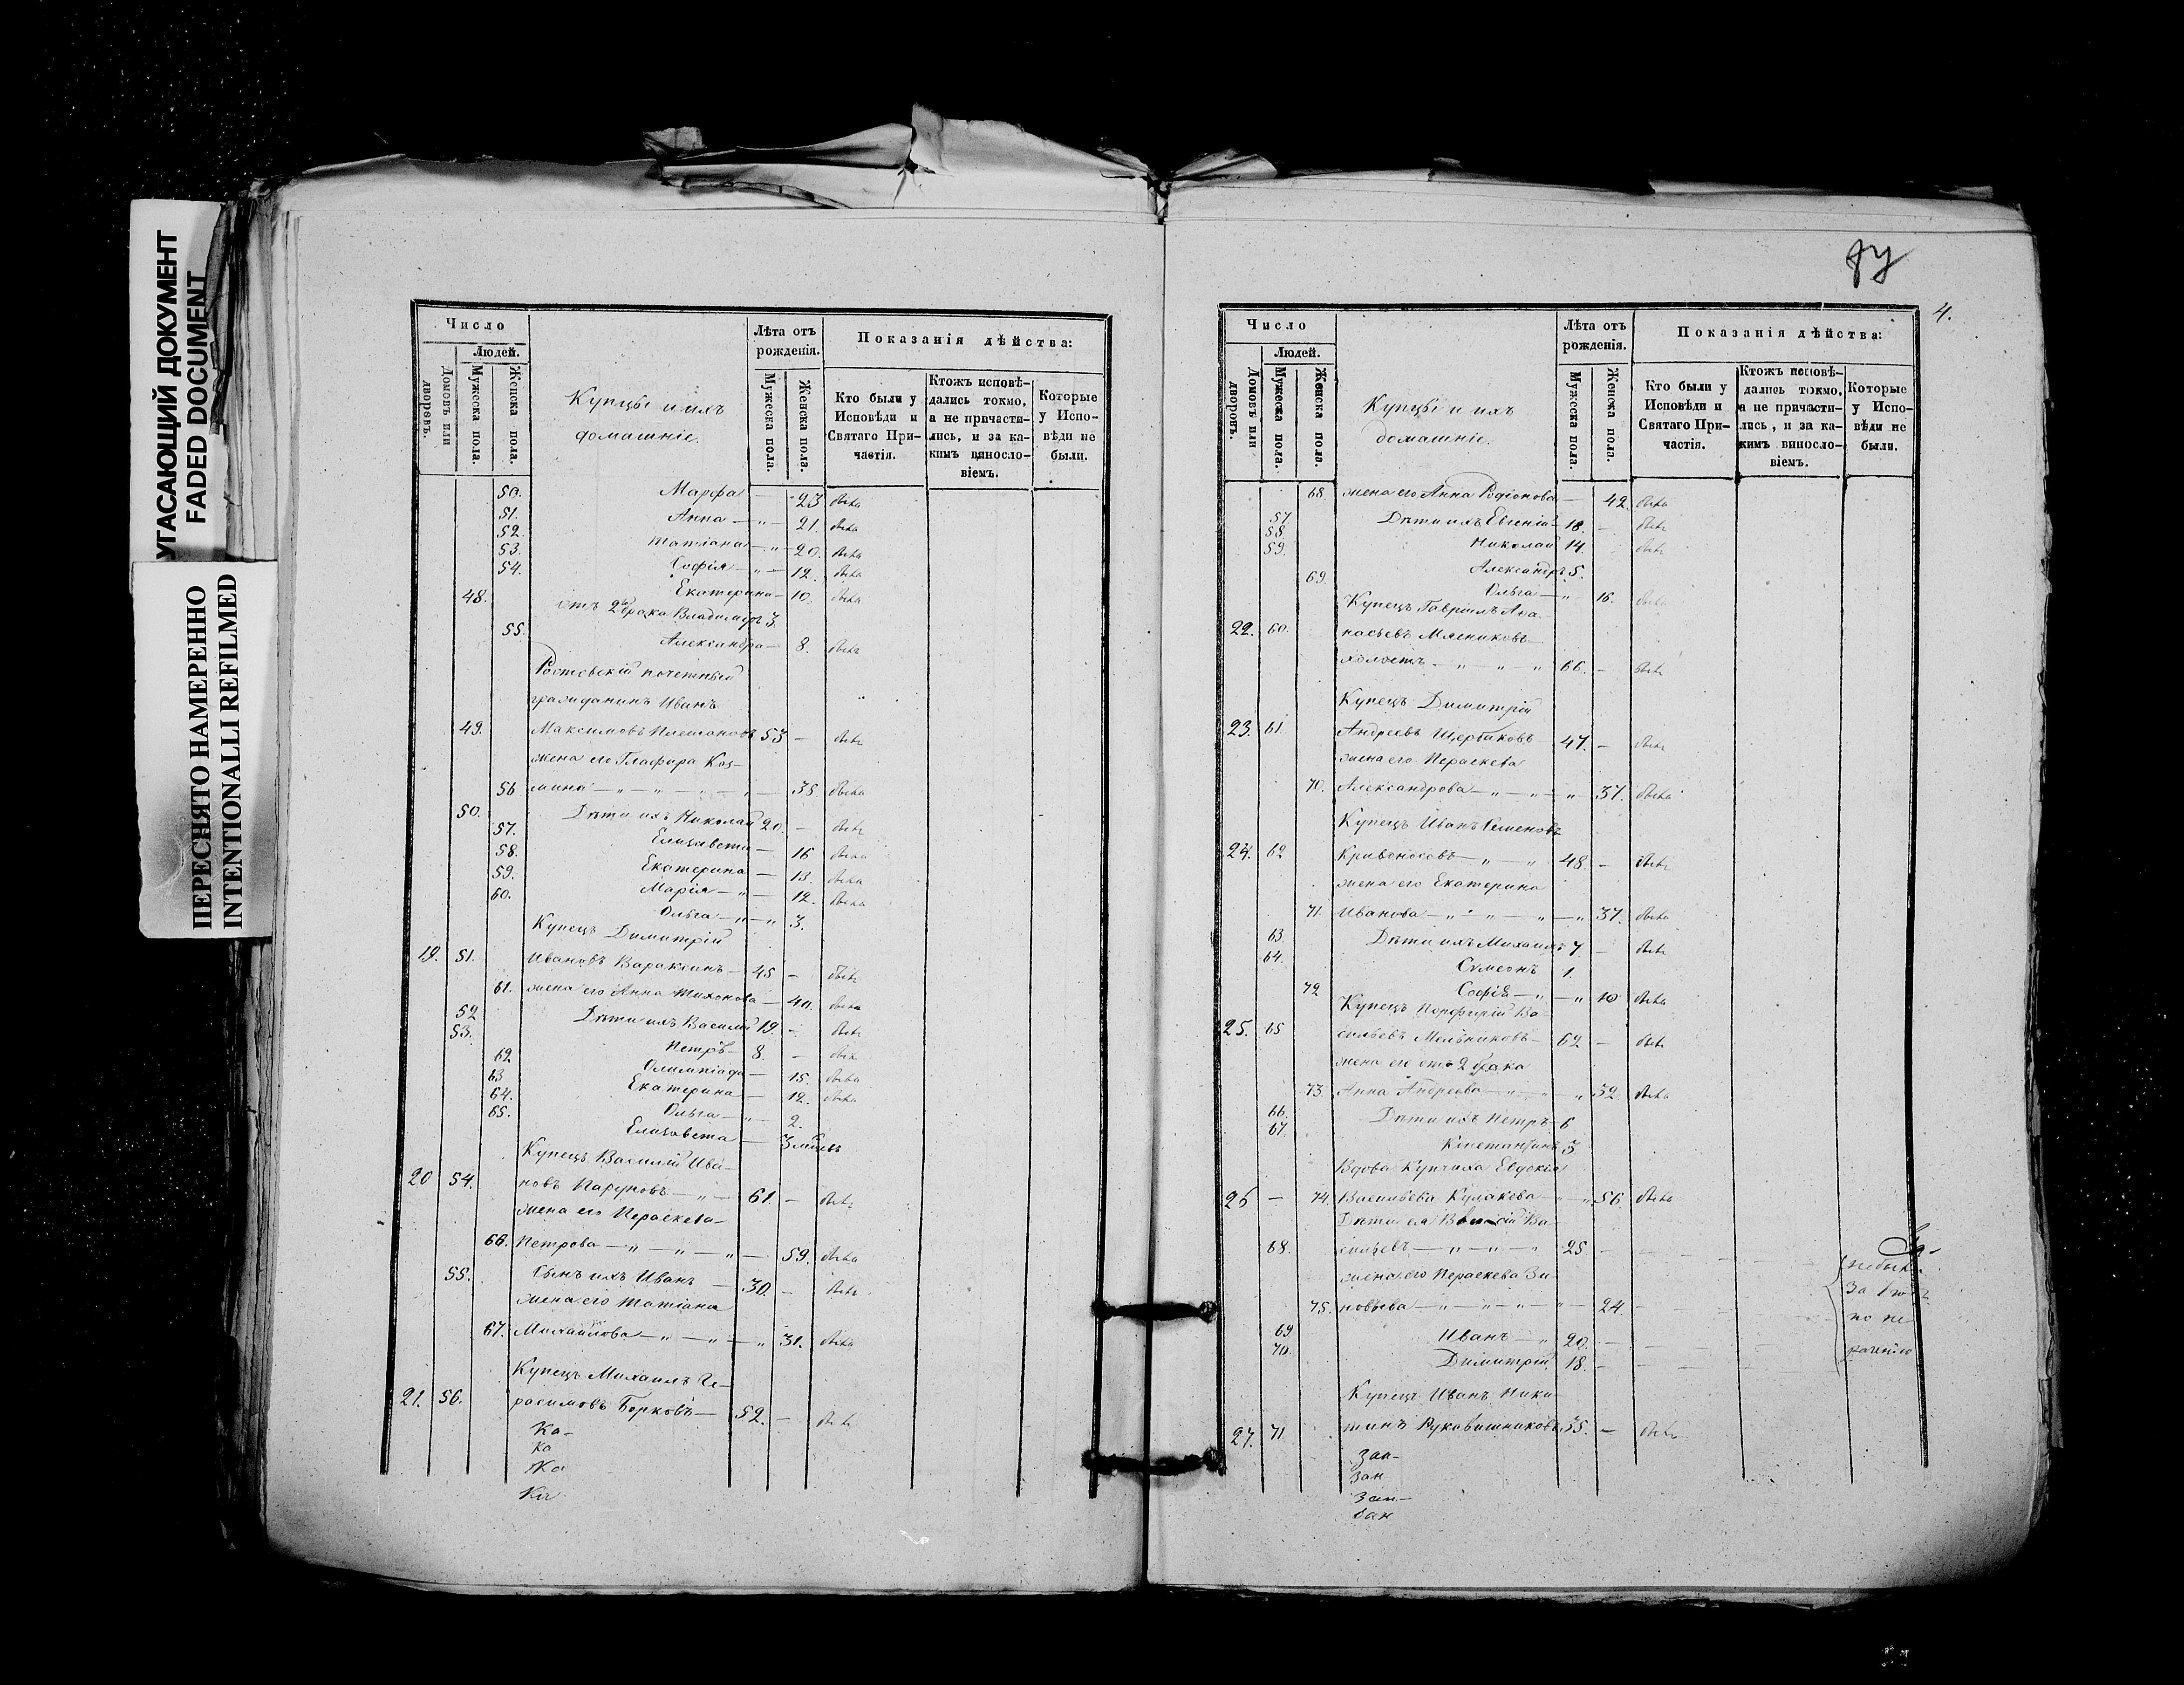 УГАСАЮЩИЙ ДОКУМЕНТ
FADED DOCUMENT
ПЕРЕСНЯТО НАМЕРЕННО
INTENTIONALLI REFILMED
Число
Людей.
Домовъ или дворовъ.
Мужеска пола.
Женска пола.
Купцы и ихъ
домашніе.
Лѣта отъ
рожденія.
Мужеска пола.
Женска пола.
Показанія дѣйства:
Кто были у
Исповѣди и
Святаго При-
частія.
Ктожъ исповѣ-
дались токмо,
а не причасти-
лись, и за ка-
кимъ винесло-
віемъ.
Которые
у Испо-
вѣди не
были.
50. Марфа — 23 была
51. Анна — " — 21. была
52. Татіана — " — 20. была
53. Софія — " — 12. была
54. Екатерина — 10. была
48. отъ 2го брака Владиміръ 3.
55. Александра — 8. была
Ростовскій почетный
гражданинъ Иванъ
49. Максимовъ Плешановъ 53 — былъ
жена его Глафира Коз-
56 мина — " — " — " — " — 35 была
50. Дѣти ихъ Николай 20. — былъ
57. Елизавета — 16 была
58. Екатерина — 13. была
59. Марія — " — 12. была
60. Ольга — " — " 3.
Купецъ Димитрій
19. 51. Ивановъ Вараксинъ — 45 — былъ
61. жена его Анна Тихонова — 40. была
52 Дѣти ихъ Василій 19. — былъ
53. Петръ — 8. — былъ
62 Олимпіада — 15. была
63 Екатерина — 12. была
64. Ольга — " — 2.
65. Елизавета — 3 мѣсяцъ
Купецъ Василій Ива-
20 54. новъ — " — 61. — былъ
жена его Параскева —
66. Петрова — " — " — " — 59. была
55. Сынъ ихъ Иванъ — 30. — былъ
жена его Татіана
67. Михайлова — " — " — " 31. была
Купецъ Михаилъ Ге-
21. 56. расимовъ Борковъ — 52. — былъ
Ка-
Ка
Ка
Ка
4.
Число
Людей.
Домовъ или дворовъ.
Мужеска пола.
Женска пола.
Купцы и ихъ
домашніе.
Лѣта отъ
рожденія.
Мужеска пола.
Женска пола.
Показанія дѣйства:
Кто были у
Исповѣди и
Святаго При-
частія.
Ктожъ исповѣ-
дались токмо,
а не причасти-
лись, и за ка-
кимъ винесло-
віемъ.
Которые
у Испо-
вѣди не
были.
68 жена его Анна Родіонова — 42. была
57. Дѣти ихъ Евгеній — 18. — былъ
58. Николай 14. былъ
59. Александръ 5.
69. Ольга — " 16. была
Купецъ Гавріилъ Аѳа-
22. 60. насьевъ Мясниковъ
холостъ — " — " — " 66. — былъ
Купецъ Димитрій
23. 61 Андреевъ Щербаковъ 47. — былъ
жена его Параскева
70. Александрова — " — " — " 37. была
Купецъ Иванъ Семеновъ
24. 62 Кривоносовъ — " — " 48. — былъ
жена его Екатерина
71. Иванова — " — " — " — " 37. была
63. Дѣти ихъ Михаилъ 7 — былъ
64. Сѵмеонъ 1.
72 Софія — " — " 10 была
Купецъ Порфирій Ва-
25. 65 сильевъ Мельниковъ — 62 — былъ
жена его отъ 2 брака
73. Анна Андреева — " — " 32 была
66. Дѣти ихъ Петръ 6
67. Константинъ 3
Вдова Купчиха Евдокія
26 — 74. Васильева Кулакова " 56 была
Дѣти ея Василій Ва-
68. сильевъ — " — " — " 25 —
жена его Параскева Зи-
75. новьева — " — " — " — " 24 —
69 Иванъ — " 20. —
70. Димитрій 18. —
небыли
за
по не
раченію
Купецъ Иванъ Ники-
27. 71 тинъ Рукавишниковъ 35. — былъ
Зак-
Зак
Зак-
Зак